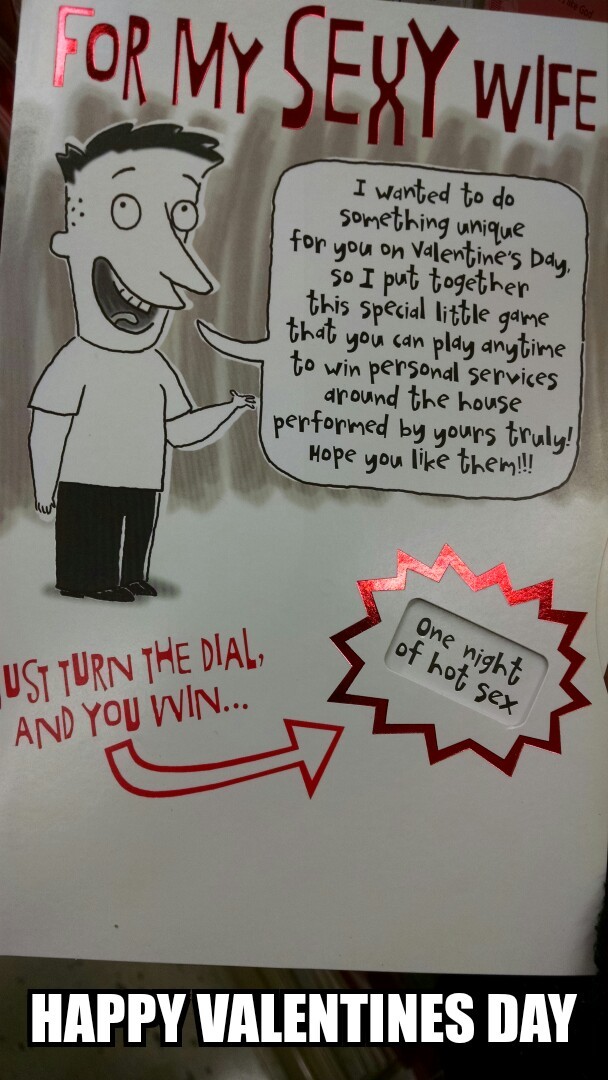 FOR MY SEXY WIFE
I wanted to do
something unique
for you on Valentine's Day,
so I put together
this special little game
that you can play anytime
to win personal services
around the house
performed by yours truly!
Hope you like them!!!
One night
of hot sex
UST TURN THE DIAL,
AND YOU WIN...
HAPPY VALENTINES DAY